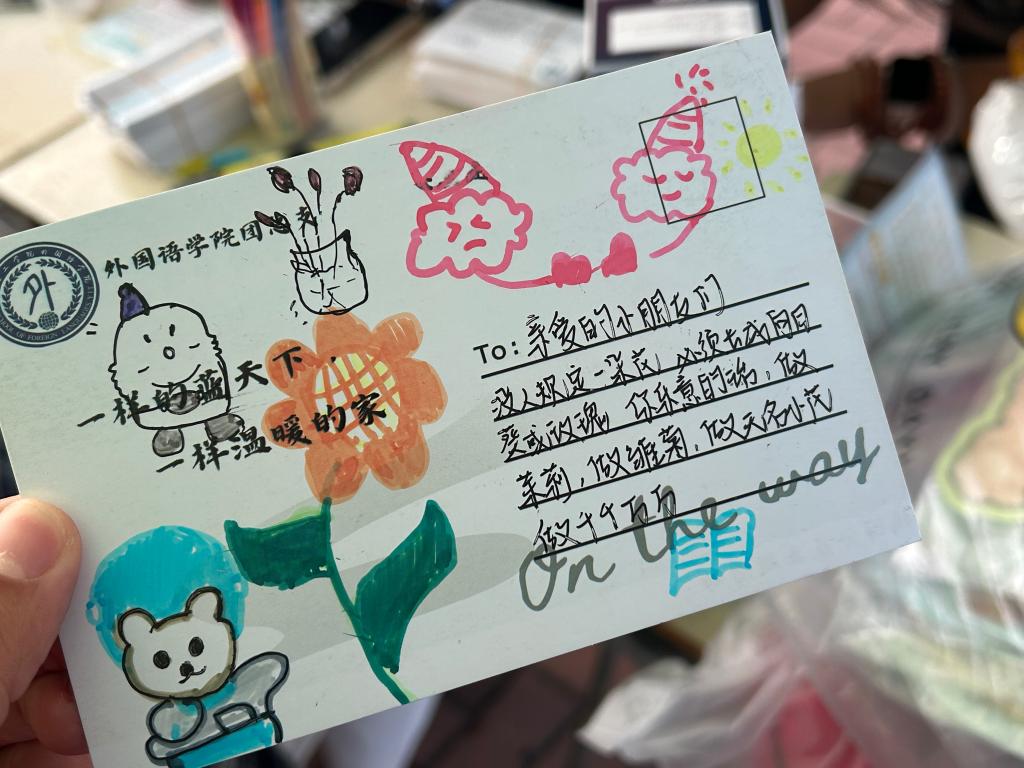 外国语学院团
一样的蓝天下
一样温暖的家
外
To: 亲爱的小朋友们
没人规定一朵花，必须长成向日
葵或玫瑰。你乐意的话，做
茉莉，做雏菊，做无名小花
做千千万万
On the way